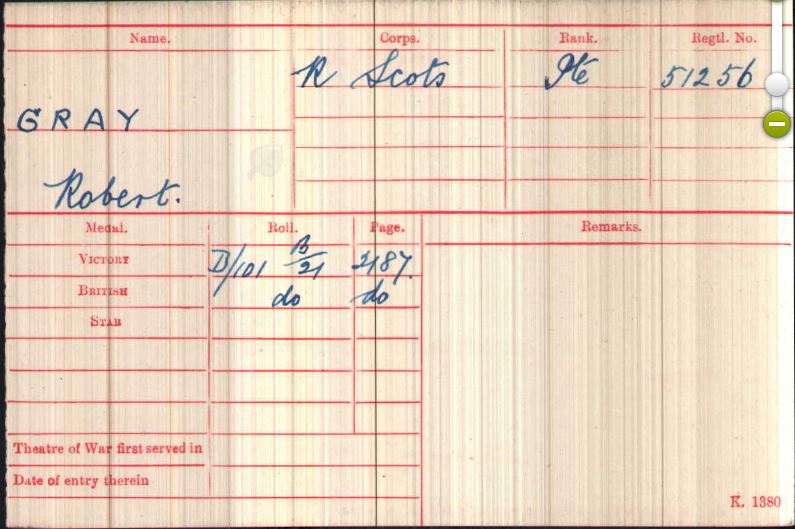 Name. Corps. Rank. Regtl. No.
R Scots Pte 51256
GRAY
Robert.
Medal. Roll. Page. Remarks.
VICTORY D/101 B/21 2187.
BRITISH do do
STAR
Theatre of War first served in
Date of entry therein
K. 1380